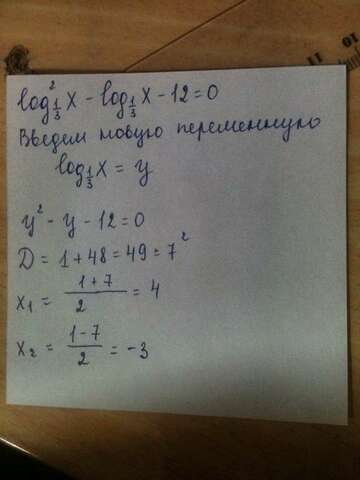 log²_{1/3} x - log_{1/3} x - 12 = 0
Введем новую переменную
log_{1/3} x = y
y² - y - 12 = 0
D = 1 + 48 = 49 = 7²
x₁ = (1+7)/2 = 4
x₂ = (1-7)/2 = -3
10
11